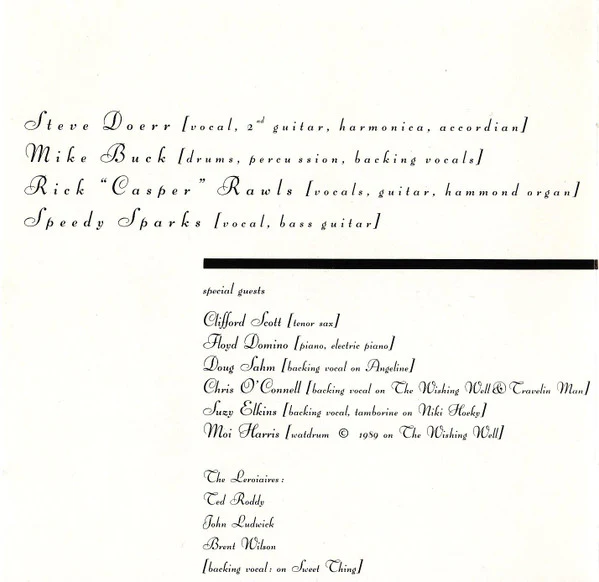 Steve Doerr [vocal, 2nd guitar, harmonica, accordian]
Mike Buck [drums, percussion, backing vocals]
Rick "Casper" Rawls [vocals, guitar, hammond organ]
Speedy Sparks [vocal, bass guitar]
special guests
Clifford Scott [tenor sax]
Floyd Domino [piano, electric piano]
Doug Sahm [backing vocal on Angeline]
Chris O'Connell [backing vocal on The Wishing Well & Travelin Man]
Suzy Elkins [backing vocal, tamborine on Niki Hoeky]
Moi Harris [watdrum © 1989 on The Wishing Well]
The Leroiaires:
Ted Roddy
John Ludwick
Brent Wilson
[backing vocal: on Sweet Thing]